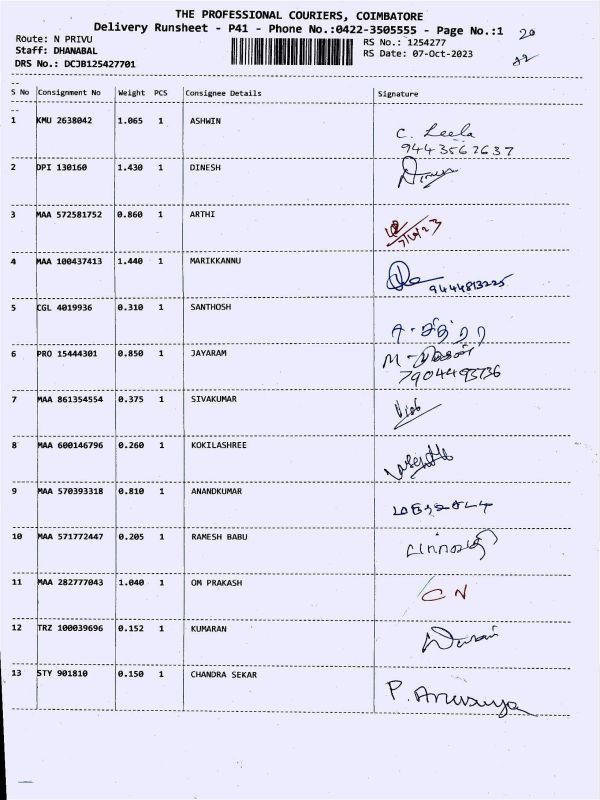 THE PROFESSIONAL COURIERS, COIMBATORE
Delivery Runsheet - P41 - Phone No.:0422-3505555 - Page No.:1 20
Route: N PRIVU RS No.: 1254277
Staff: DHANABAL RS Date: 07-Oct-2023
DRS No.: DCJB125427701
S No Consignment No Weight PCS Consignee Details Signature
1 KMU 2638042 1.065 1 ASHWIN C. Leela
9443562637
2 DPI 130160 1.430 1 DINESH
3 MAA 572581752 0.860 1 ARTHI 7/10/23
4 MAA 100437413 1.440 1 MARIKKANNU 9444813225
5 CGL 4019936 0.310 1 SANTHOSH
6 PRO 15444301 0.850 1 JAYARAM
7 MAA 861354554 0.375 1 SIVAKUMAR
8 MAA 600146796 0.260 1 KOKILASHREE
9 MAA 570393318 0.810 1 ANANDKUMAR
10 MAA 571772447 0.205 1 RAMESH BABU
11 MAA 282777043 1.040 1 OM PRAKASH CN
12 TRZ 100039696 0.152 1 KUMARAN
13 STY 901810 0.150 1 CHANDRA SEKAR P. Anusuya